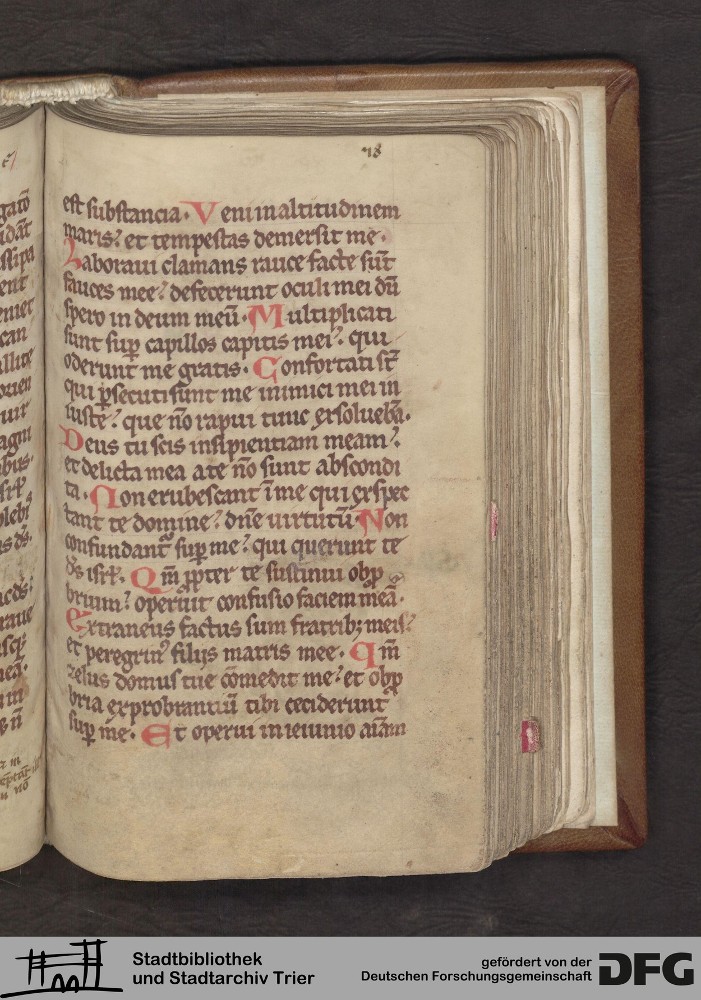 78
est substancia. Veni in altitudinem
maris? et tempestas demersit me.
Laboraui clamans rauce facte sūt
fauces mee? defecerunt oculi mei dū
spero in deum meū. Multiplicati
sunt suꝑ capillos capitis mei?. qui
oderunt me gratis. Confortati st̄
qui ꝑsecuti sunt me inimici mei in
iuste? que nō rapui tunc exsoluebā.
Deus tu scis insipientiam meam?.
et delicta mea a te nō sunt abscondi
ta. Non erubescant ī me qui exspec
tant te domine? dn̄e uirtutū. Non
confundant᷑ suꝑ me? qui querunt te
ds̄ isrł. Qm̄ ꝓpter te sustinui obꝓ
brium? operuit confusio faciem meā.
Extraneus factus sum fratribꝫ meis?
et peregrinꝰ filijs matris mee. Qm̄
zelus domus tue cōmedit me? et obꝓ
bria exprobrantiū tibi ceciderunt
suꝑ me. Et operui in ieiunio aīam
Stadtbibliothek
und Stadtarchiv Trier
gefördert von der
Deutschen Forschungsgemeinschaft
DFG